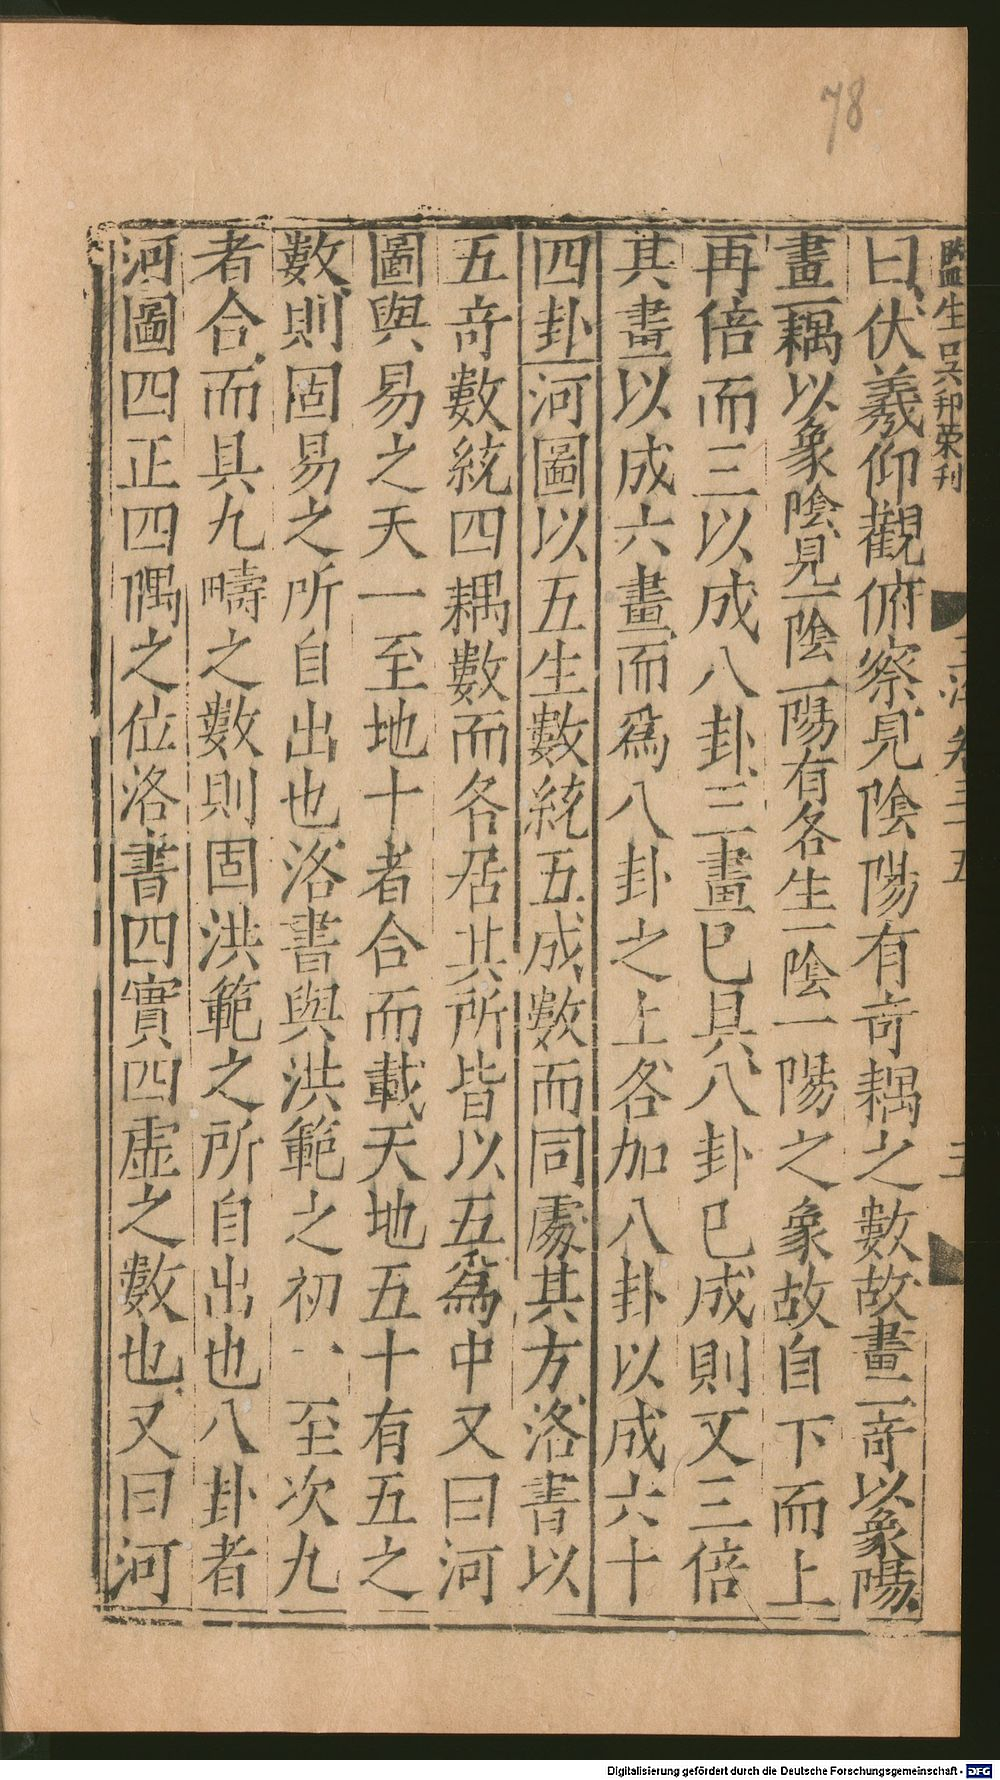 78
監生吳邦榮刊
玉海卷三十五
五
曰伏羲仰觀俯察見陰陽有奇耦之數故畫一奇以象陽
畫一耦以象陰見一陰一陽有各生一陰一陽之象故自下而上
再倍而三以成八卦三畫已具八卦已成則又三倍
其畫以成六畫而爲八卦之上各加八卦以成六十
四卦河圖以五生數統五成數而同處其方洛書以
五奇數統四耦數而各居其所皆以五爲中又曰河
圖與易之天一至地十者合而載天地五十有五之
數則固易之所自出也洛書與洪範之初一至次九
者合而具九疇之數則固洪範之所自出也八卦者
河圖四正四隅之位洛書四實四虛之數也又曰河
Digitalisierung gefördert durch die Deutsche Forschungsgemeinschaft - DFG